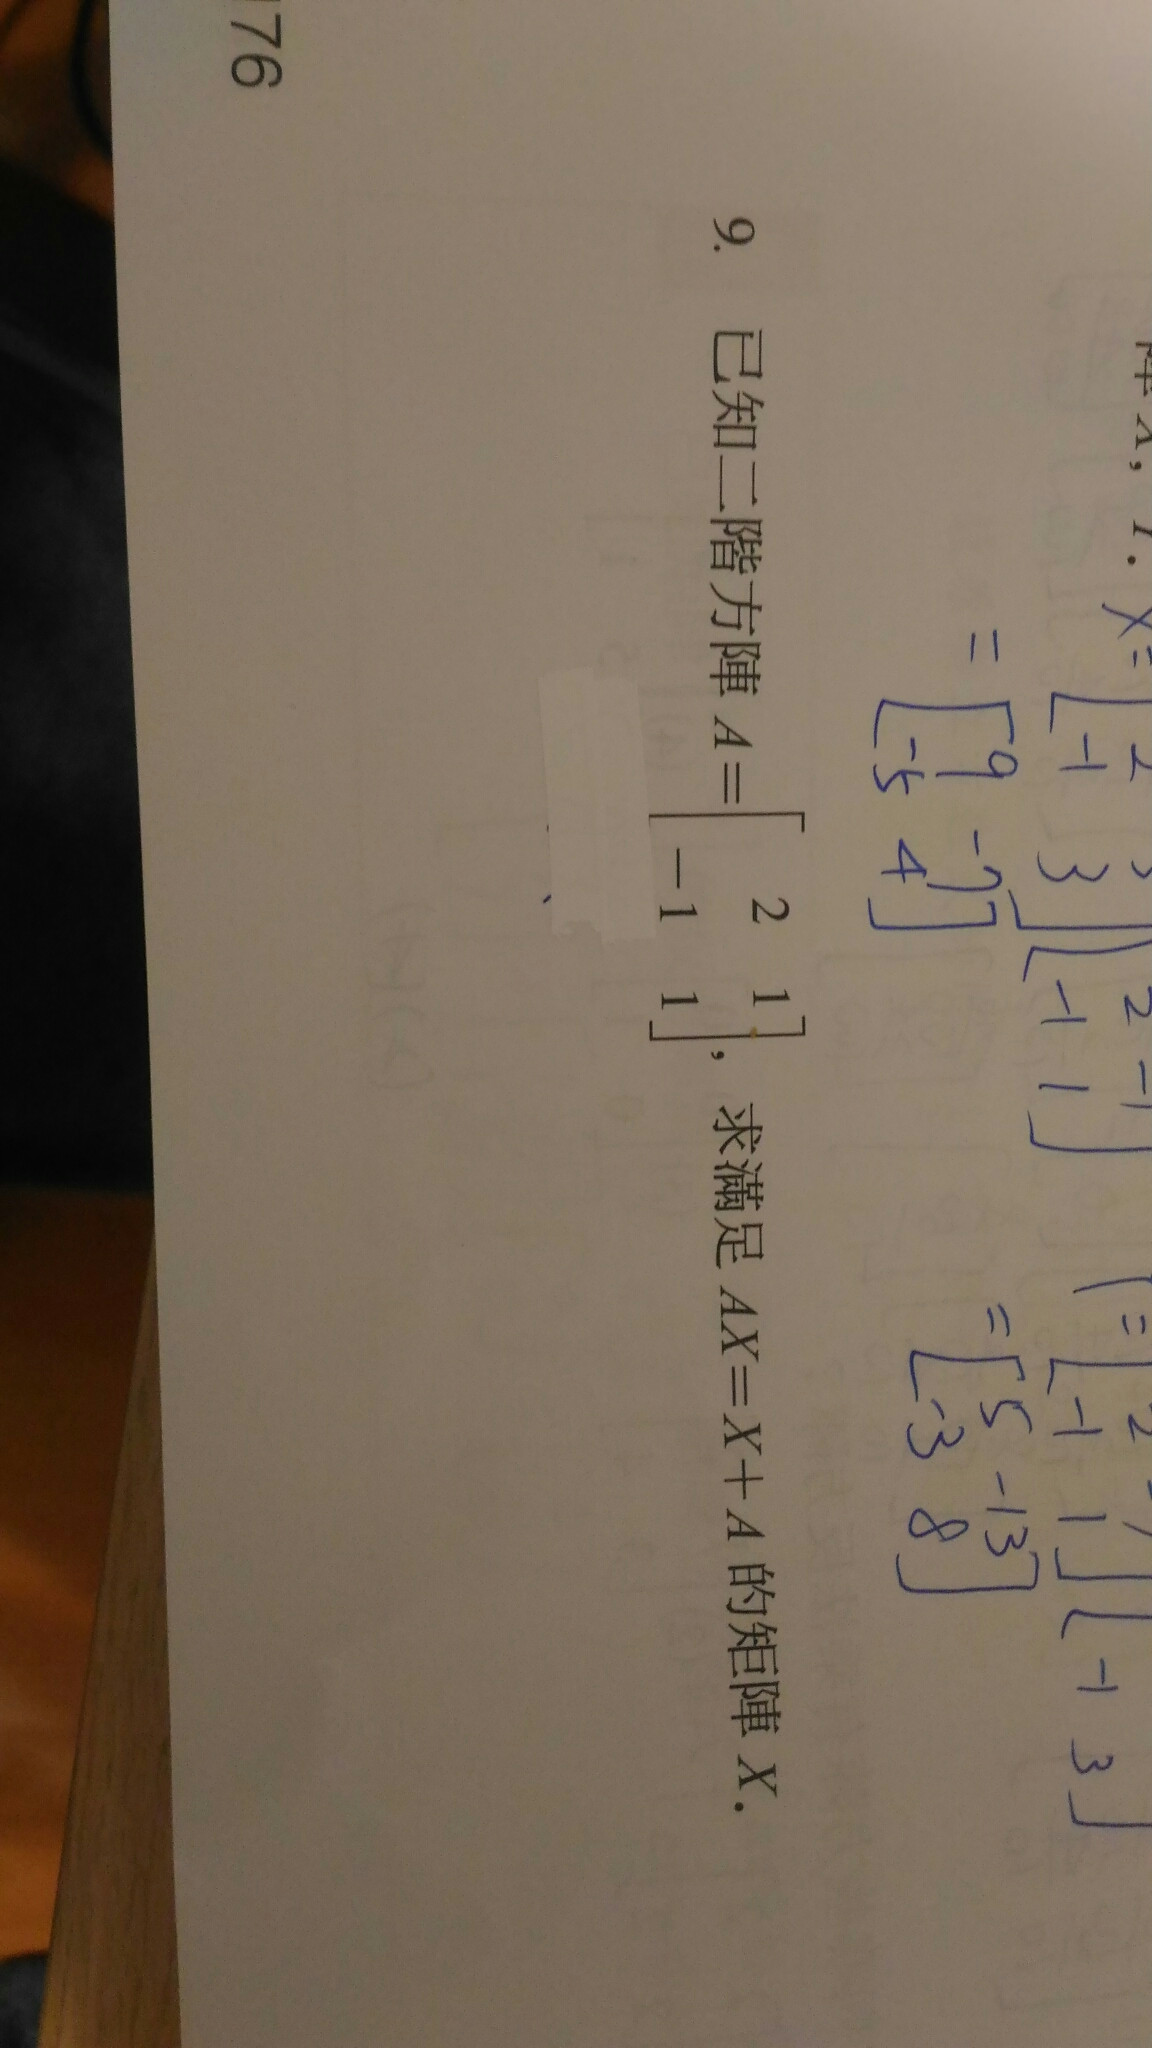 陣 X, Y.
X=[2
-1 3][2 -1
-1 1]
=[9 -7
-5 4]
Y=[2
-1 1][
-1 3]
=[5 -13
-3 8]
9. 已知二階方陣 A=[2 1
-1 1], 求滿足 AX=X+A 的矩陣 X.
176